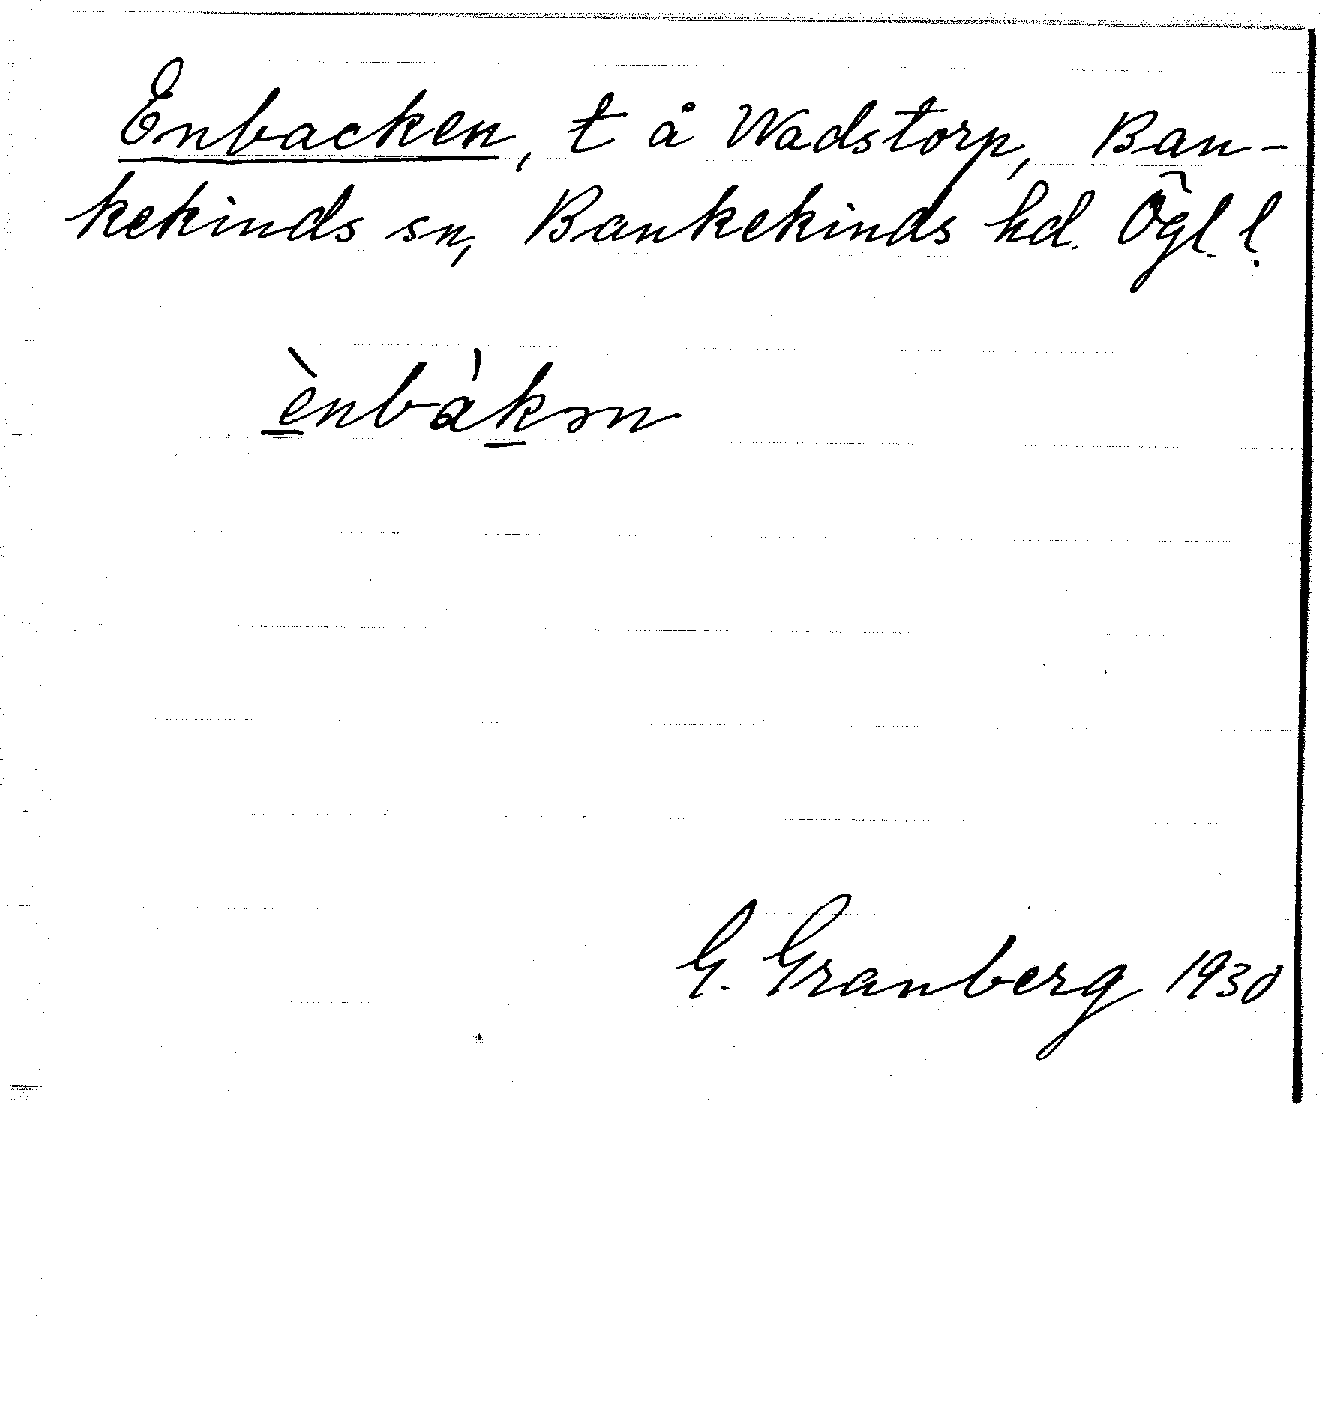 Enbacken, t å Wadstorp, Ban-
kekinds sn, Bankekinds hd. Ögl. l.
ènbàkən
G. Granberg 1930